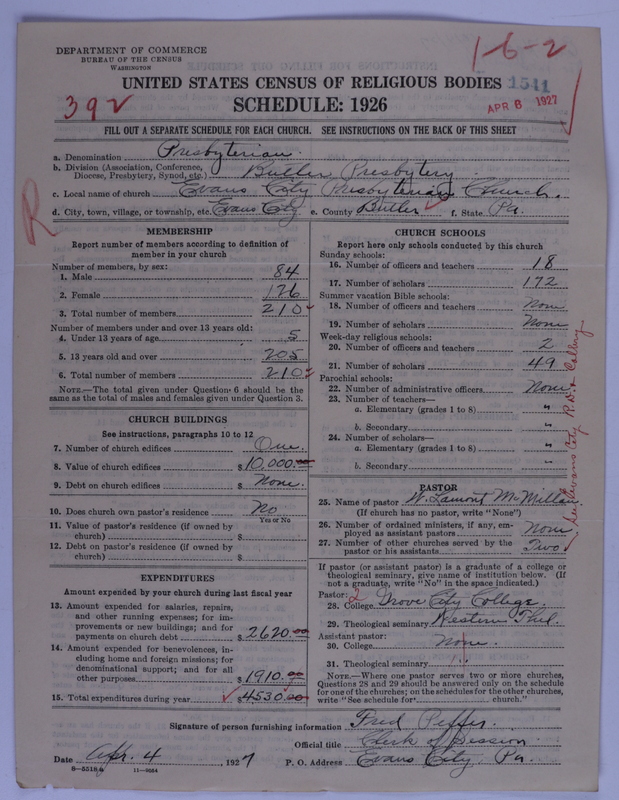 DEPARTMENT OF COMMERCE
BUREAU OF THE CENSUS
WASHINGTON
1-6-2
UNITED STATES CENSUS OF RELIGIOUS BODIES 1511
392
SCHEDULE: 1926
APR 8 1927
FILL OUT A SEPARATE SCHEDULE FOR EACH CHURCH. SEE INSTRUCTIONS ON THE BACK OF THIS SHEET
a. Denomination Presbyterian.
b. Division (Association, Conference, Diocese, Presbytery, Synod, etc.) Butler Presbytery
c. Local name of church Evans City Presbyterian Church.
d. City, town, village, or township, etc. Evans City e. County Butler f. State Pa.
R
MEMBERSHIP
Report number of members according to definition of
member in your church
Number of members, by sex:
1. Male 84
2. Female 126
3. Total number of members 210
Number of members under and over 13 years old:
4. Under 13 years of age 5
5. 13 years old and over 205
6. Total number of members 210
NOTE.—The total given under Question 6 should be the
same as the total of males and females given under Question 3.
CHURCH BUILDINGS
See instructions, paragraphs 10 to 12
7. Number of church edifices One.
8. Value of church edifices $10,000.00
9. Debt on church edifices $ None.
10. Does church own pastor's residence No
Yes or No
11. Value of pastor's residence (if owned by
church) $
12. Debt on pastor's residence (if owned by
church) $
EXPENDITURES
Amount expended by your church during last fiscal year
13. Amount expended for salaries, repairs,
and other running expenses; for im-
provements or new buildings; and for
payments on church debt $2620.00
14. Amount expended for benevolences, in-
cluding home and foreign missions; for
denominational support; and for all
other purposes $1910.00
15. Total expenditures during year $4530.00
CHURCH SCHOOLS
Report here only schools conducted by this church
Sunday schools:
16. Number of officers and teachers 18
17. Number of scholars 172
Summer vacation Bible schools:
18. Number of officers and teachers None
19. Number of scholars None
Week-day religious schools:
20. Number of officers and teachers 2
21. Number of scholars 49
Parochial schools:
22. Number of administrative officers None
23. Number of teachers—
a. Elementary (grades 1 to 8) "
b. Secondary "
24. Number of scholars—
a. Elementary (grades 1 to 8) "
b. Secondary "
PASTOR
25. Name of pastor W. Lamont McMillan
(If church has no pastor, write "None")
26. Number of ordained ministers, if any, em-
ployed as assistant pastors None
27. Number of other churches served by the
pastor or his assistants Two
If pastor (or assistant pastor) is a graduate of a college or
theological seminary, give name of institution below. (If
not a graduate, write "No" in the space indicated.)
Pastor: 2
28. College Grove City College
29. Theological seminary Western Thel.
Assistant pastor:
30. College None.
31. Theological seminary
NOTE.—Where one pastor serves two or more churches,
Questions 28 and 29 should be answered only on the schedule
for one of the churches; on the schedules for the other churches,
write "See schedule for church."
Signature of person furnishing information Fred Peffer.
Official title Clerk of Session
Date Apr. 4 1927 P. O. Address Evans City, Pa.
8—5518a 11—9664